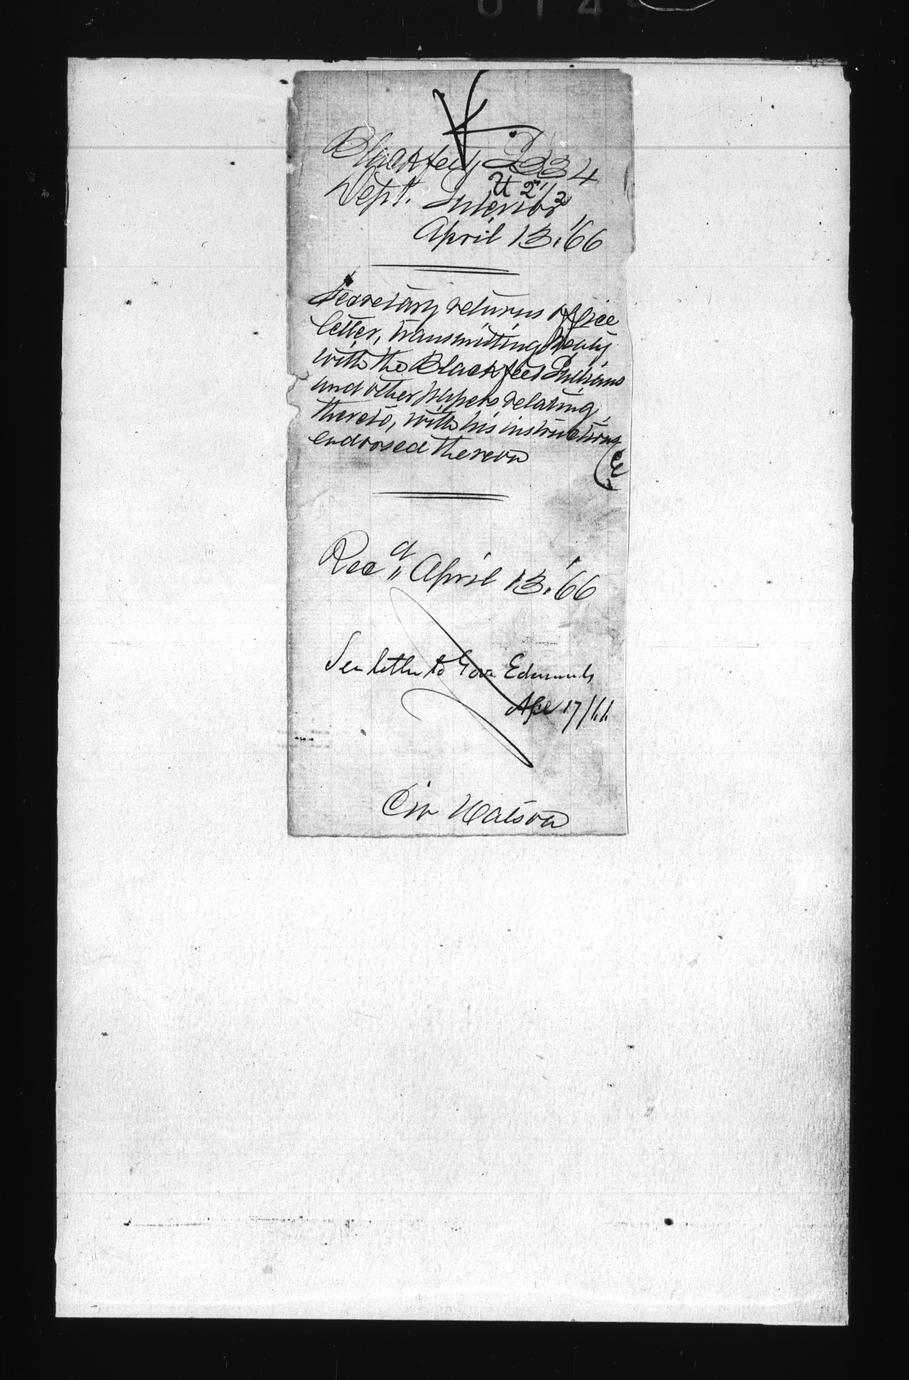 Blackfeet I 334
Dept. Interior
April 13, '66
Secretary returns office
letter, transmitting treaty
with the Blackfeet Indians
and other papers relating
thereto, with his instructions
endorsed thereon
Rec'd April 13, '66
See letter to Gov Edmunds
Apl 17/66
Civ Watson